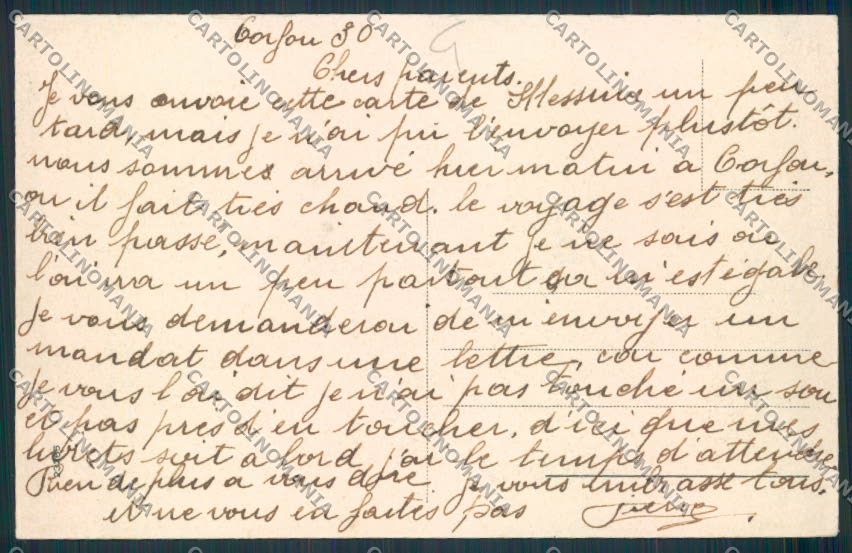 Corfou 30
Chers parents.
Je vous envoie cette carte de Messine un peu
tard, mais je n'ai pu l'envoyer plustôt.
nous sommes arrivé hier matin a Corfou,
ou il fait tres chaud. le voyage s'est tres
bien passé, maintenant je ne sais ou
l'on ira un peu partout ça m'est égale.
Je vous demanderai de m'envoyer un
mandat dans une lettre, car comme
je vous l'ai dit je n'ai pas touché un sou
et pas pres d'en toucher, d'ici que mes
livrets soit a bord j'ai le temps d'attendre.
Rien de plus a vous dire je vous embrasse tous.
et ne vous en faites pas Pierre
CARTOLINOMANIA